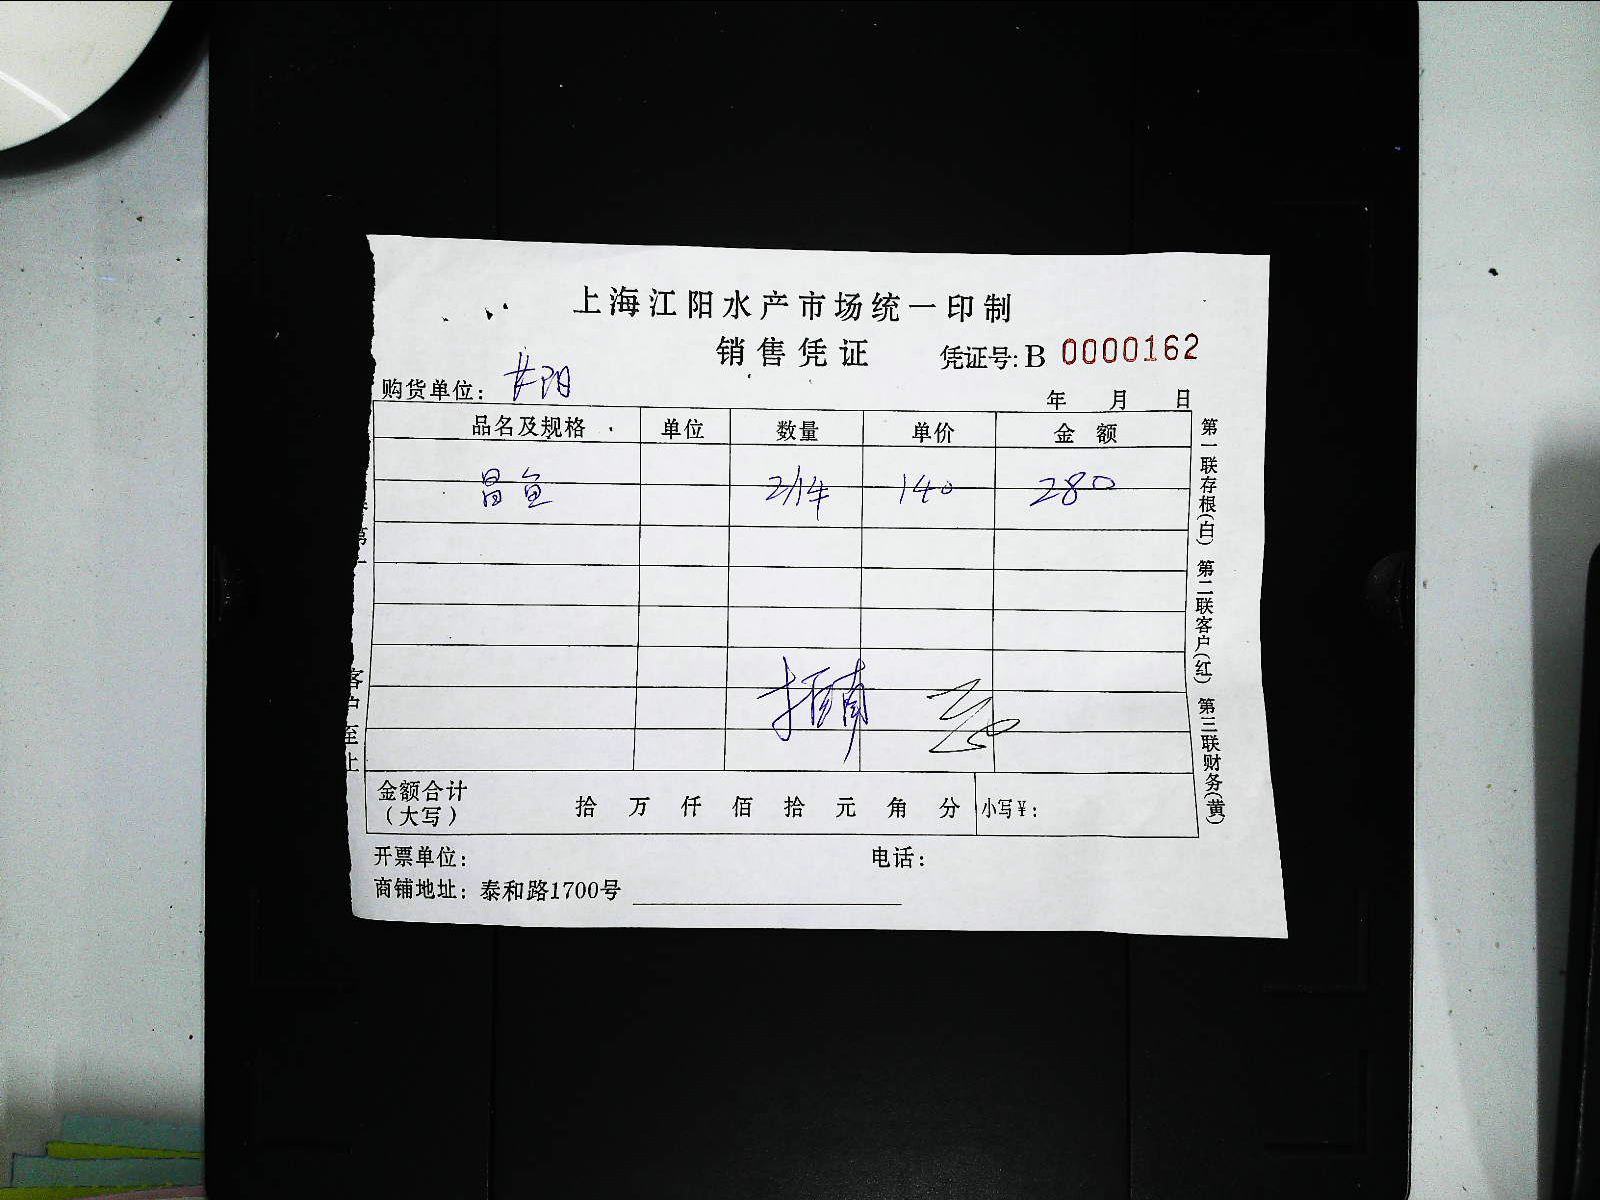 上海江阳水产市场统一印制
销售凭证 凭证号: B 0000162
购货单位:
年 月 日
品名及规格 单位 数量 单价 金额
昌鱼 2件 140 280
金额合计(大写) 拾 万 仟 佰 拾 元 角 分 小写¥:
开票单位: 电话:
商铺地址: 泰和路1700号
第一联存根(白) 第二联客户(红) 第三联财务(黄)